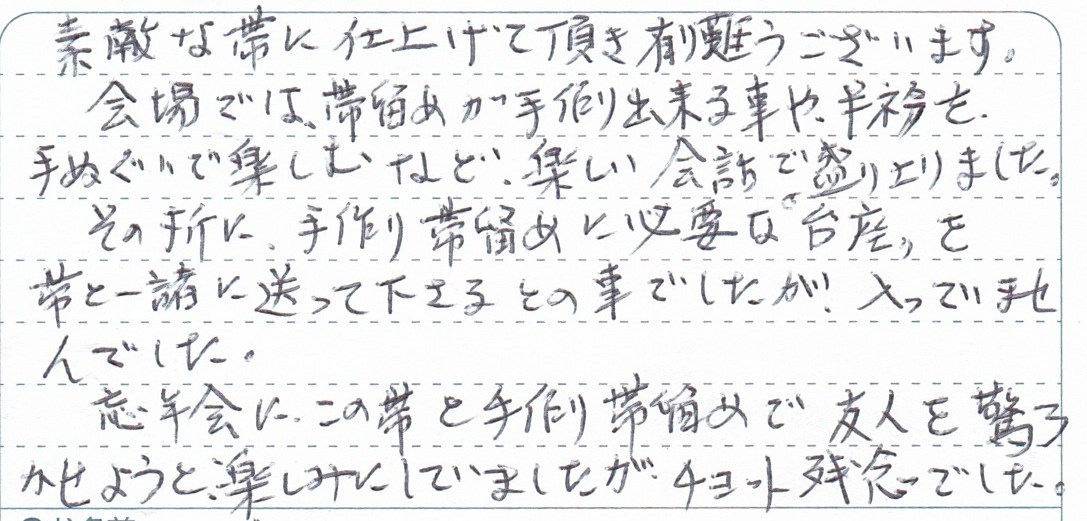 素敵な帯に仕上げて頂き有難うございます。
会場では、帯留めが手作り出来る事や、半衿を、
手ぬぐいで楽しむなど、楽しい会話で盛り上りました。
その折に、手作り帯留めに必要な〝台座〟を
帯と一緒に送って下さるとの事でしたが、入っていませ
んでした。
忘年会に、この帯と手作り帯留めで友人を驚ろ
かせようと、楽しみにしていましたが、チョット残念でした。